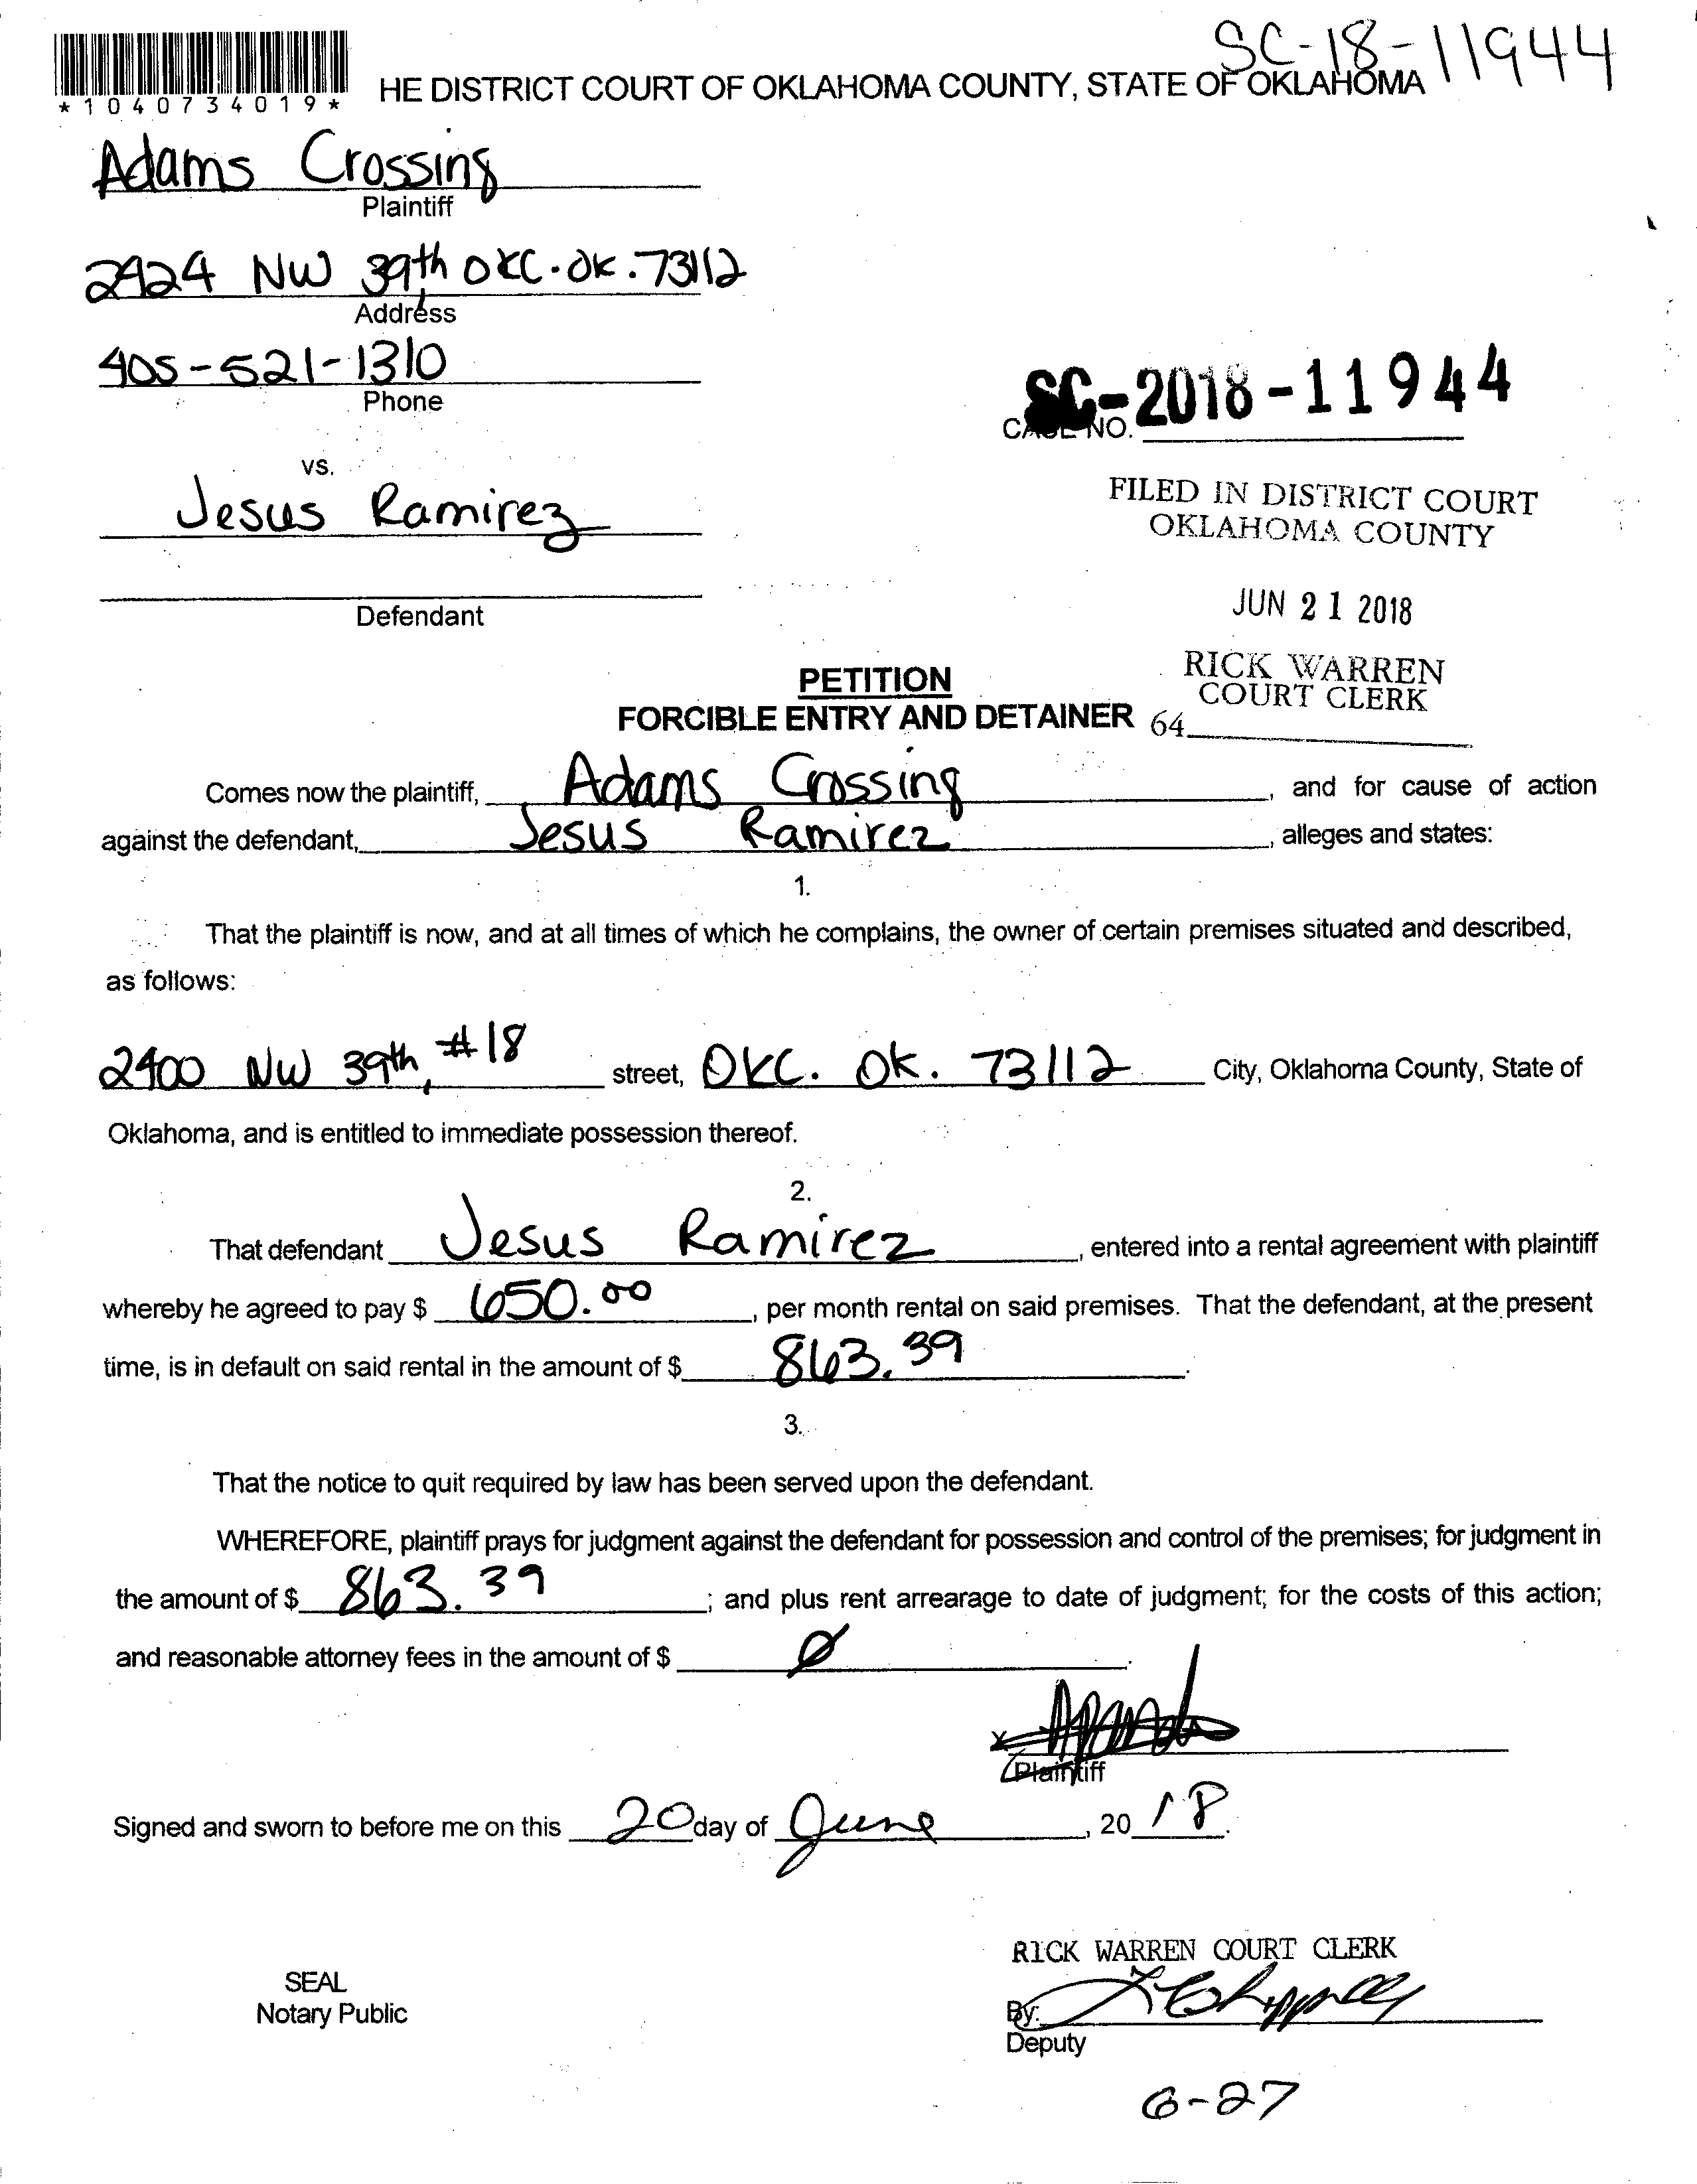 SC-18-11944
*1040734019*
HE DISTRICT COURT OF OKLAHOMA COUNTY, STATE OF OKLAHOMA
Adams Crossing
Plaintiff
2424 NW 39th OKC. OK. 73112
Address
405-521-1310
Phone
SC-2018-11944
CASE NO.
vs.
Jesus Ramirez
FILED IN DISTRICT COURT
OKLAHOMA COUNTY
Defendant
JUN 21 2018
RICK WARREN
COURT CLERK
64
PETITION
FORCIBLE ENTRY AND DETAINER
Comes now the plaintiff, Adams Crossing, and for cause of action
against the defendant, Jesus Ramirez, alleges and states:
1.
That the plaintiff is now, and at all times of which he complains, the owner of certain premises situated and described,
as follows:
2400 NW 39th, #18 street, OKC. OK. 73112 City, Oklahoma County, State of
Oklahoma, and is entitled to immediate possession thereof.
2.
That defendant Jesus Ramirez, entered into a rental agreement with plaintiff
whereby he agreed to pay $ 650.00, per month rental on said premises. That the defendant, at the present
time, is in default on said rental in the amount of $ 863.39.
3.
That the notice to quit required by law has been served upon the defendant.
WHEREFORE, plaintiff prays for judgment against the defendant for possession and control of the premises; for judgment in
the amount of $ 863.39; and plus rent arrearage to date of judgment; for the costs of this action;
and reasonable attorney fees in the amount of $ Ø.
x
Plaintiff
Signed and sworn to before me on this 20 day of June, 2018.
RICK WARREN COURT CLERK
SEAL
Notary Public
By:
Deputy
6-27